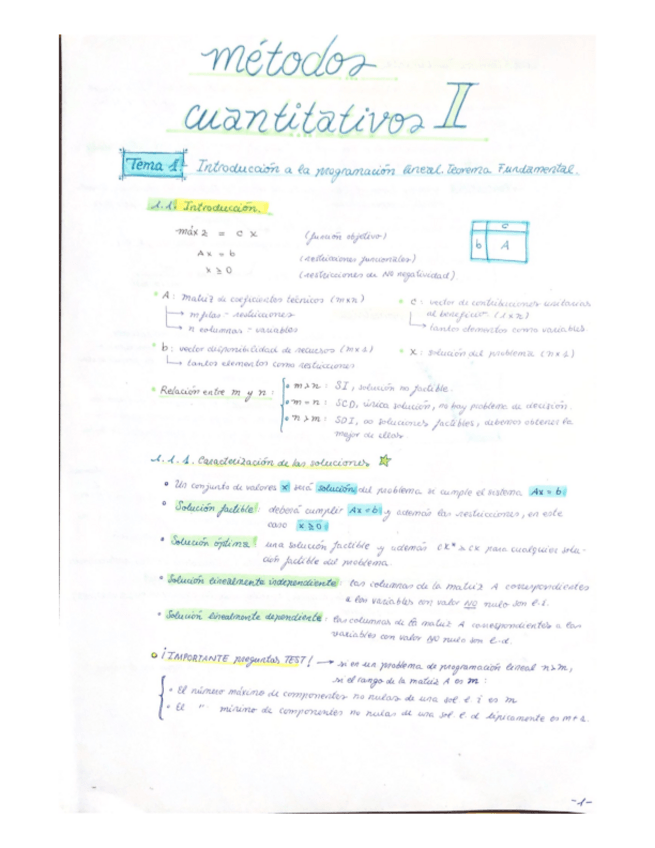 métodos
cuantitativos II
Tema 1. Introducción a la programación lineal. Teorema Fundamental.
1.1. Introducción.
máx z = c x (función objetivo)
Ax = b (restricciones funcionales)
x ≥ 0 (restricciones de NO negatividad)
c
b A
• A: matriz de coeficientes técnicos (m x n)
→ m filas - restricciones
→ n columnas - variables
• c: vector de contribuciones unitarias
al beneficio (1 x n)
→ tantos elementos como variables
• b: vector disponibilidad de recursos (m x 1)
→ tantos elementos como restricciones
• X: solución del problema (n x 1)
• Relación entre m y n:
• m > n: SI, solución no factible.
• m = n: SCD, única solución, no hay problema de decisión.
• n > m: SDI, ∞ soluciones factibles, debemos obtener la
mejor de ellas
1.1.1. Caracterización de las soluciones ☆
• Un conjunto de valores x será solución del problema si cumple el sistema Ax = b
• Solución factible: deberá cumplir Ax = b y además las restricciones, en este
caso x ≥ 0
• Solución óptima: una solución factible y además cx* ≥ cx para cualquier solu-
ción factible del problema.
• Solución linealmente independiente: las columnas de la matriz A correspondientes
a las variables con valor NO nulo son l.i.
• Solución linealmente dependiente: las columnas de la matriz A correspondientes a las
variables con valor NO nulo son l.d.
• ¡IMPORTANTE preguntas TEST! → si en un problema de programación lineal n > m,
si el rango de la matriz A es m:
• El número máximo de componentes no nulas de una sol l. i es m
• El " mínimo de componentes no nulas de una sol l. d típicamente es m+1.
-1-